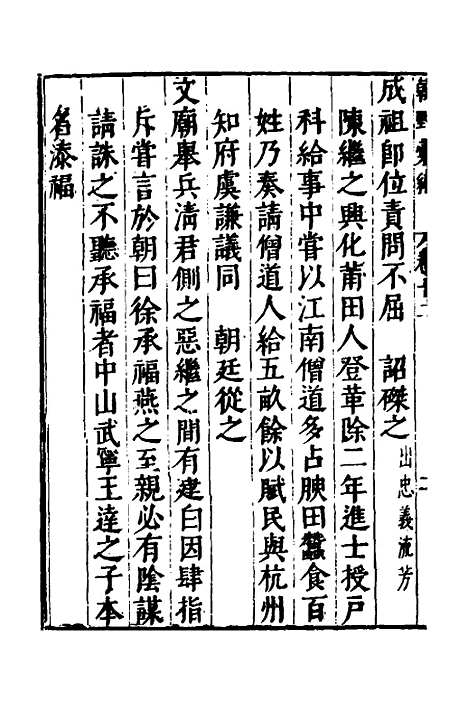 成祖即位責問不屈　詔磔之出忠義流芳
陳繼之興化莆田人登革除二年進士授戶
科給事中嘗以江南僧道多占腴田蠶食百
姓乃奏請僧道人給五畝餘以賦民與杭州
知府虞謙議同　朝廷從之
文廟舉兵淸君側之惡繼之間有建白因肆指
斥嘗言於朝曰徐承福燕之至親必有陰謀
請誅之不聽承福者中山武寧王達之子本
名添福